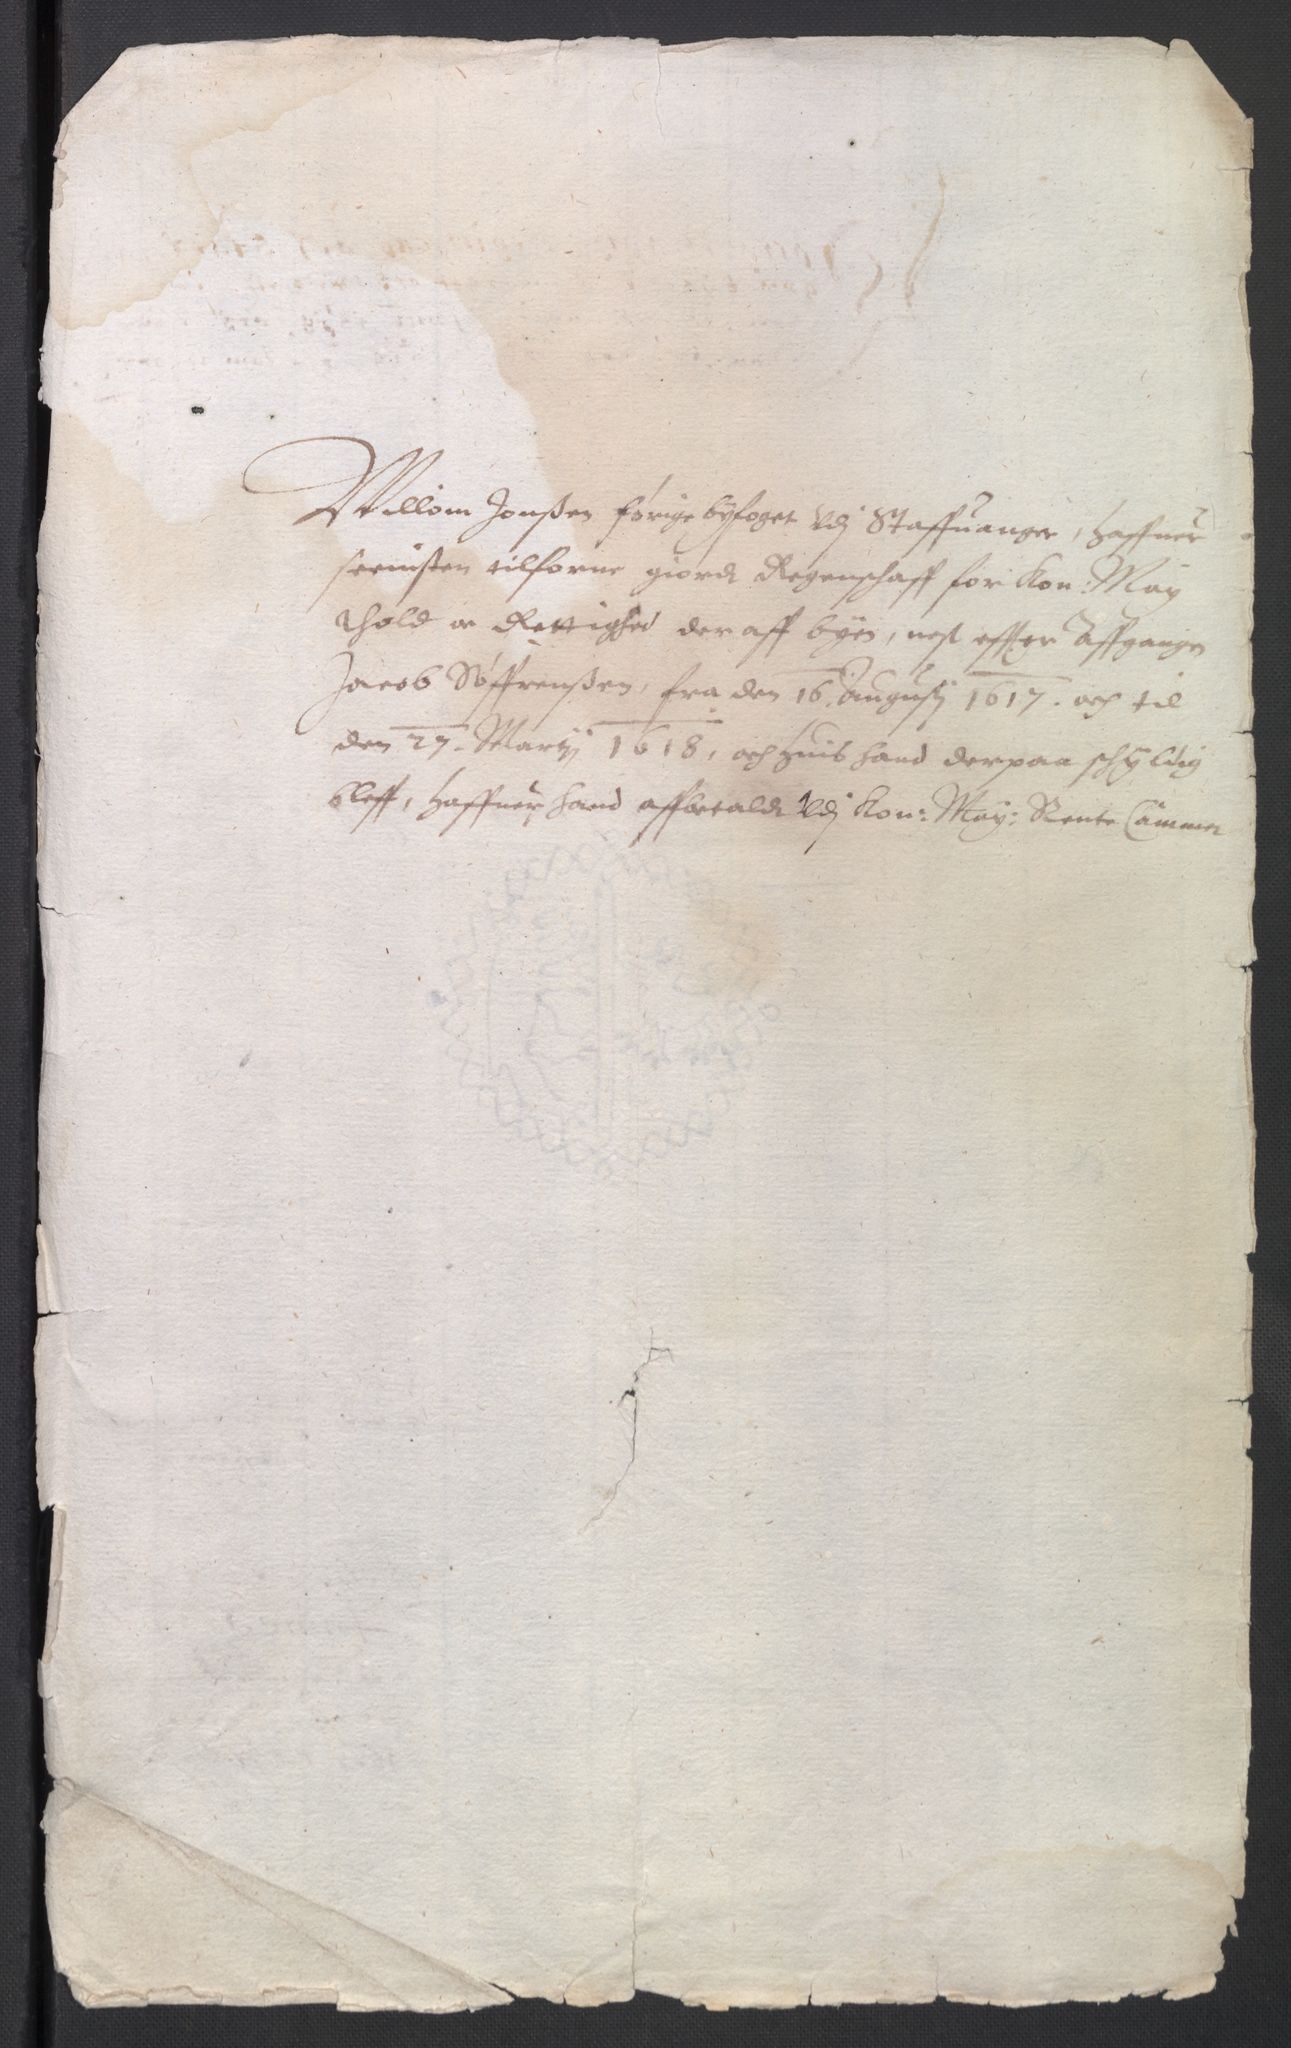 Willom Jonßen forige byfoget Vdj Staffuanger, haffuer
seenisten tilforne giordt Regenschaff for Kon: May
Thold oc Rettighed der aff byen, nest effter affgangen
Jacob Söffrenßen, fra den 16. Augustj 1617. och til
den 27. Martij 1618, och huis hand derpaa schyldig
bleff, haffuer hand affbetaldt Vdj Kon: May: Rente Cammer